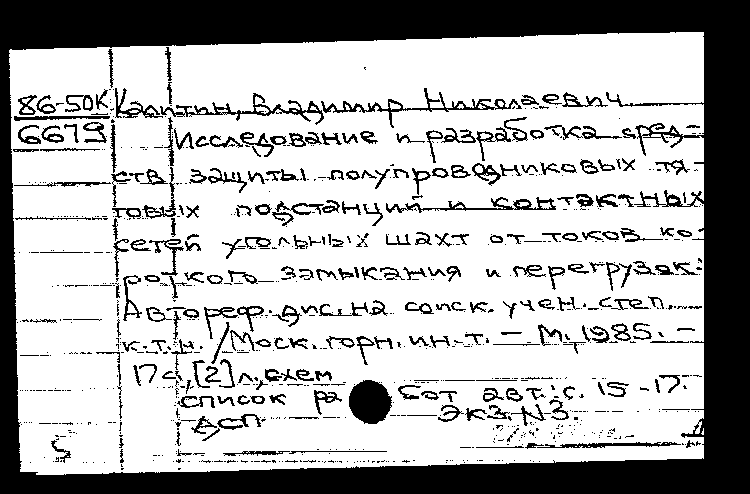 86-50К Калитин, Владимир Николаевич.
6679 Исследование и разработка сред-
ств защиты полупроводниковых тя-
говых подстанций и контактных
сетей угольных шахт от токов ко-
роткого замыкания и перегрузок:
Автореф. дис. на соиск. учен. степ.
к.т.н. / Моск. горн. ин-т. – М., 1985. –
17 с., [2] л., схем
список ра бот авт.: с. 15-17.
ДСП Экз. N3.